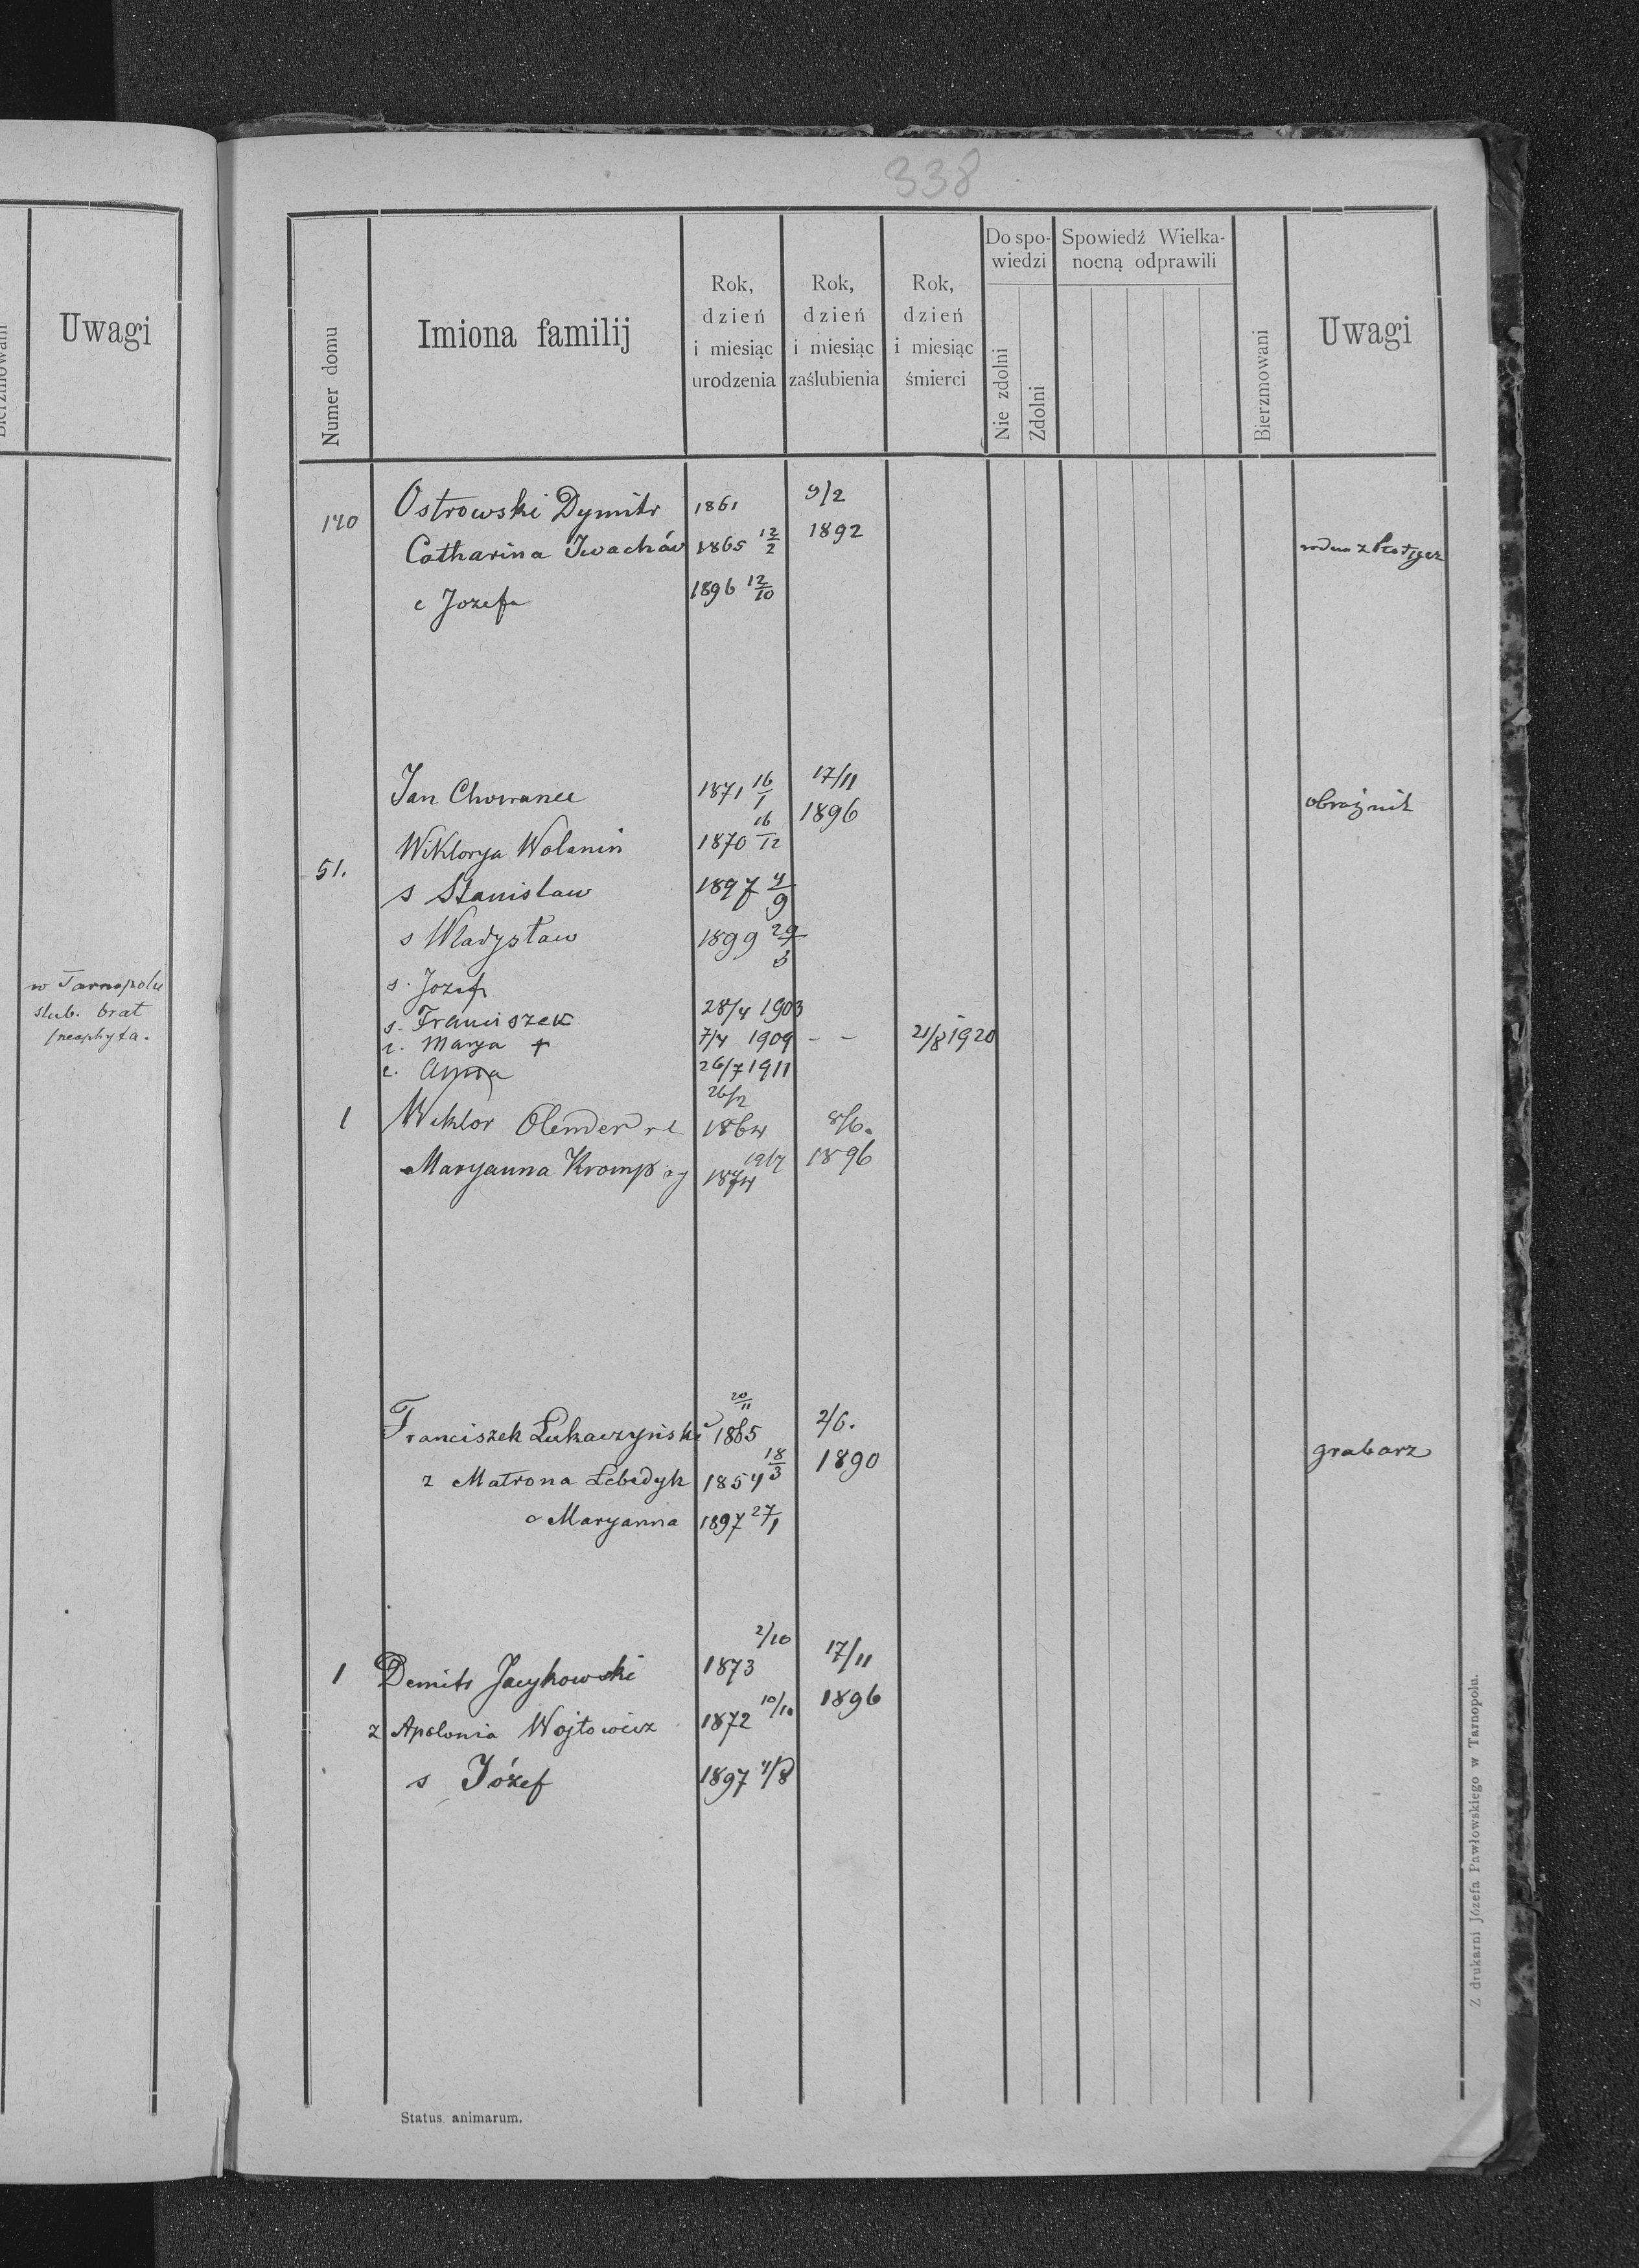 338
Uwagi
Numer domu
Imiona familij
Rok, dzień i miesiąc urodzenia
Rok, dzień i miesiąc zaślubienia
Rok, dzień i miesiąc śmierci
Do spowiedzi
Nie zdolni
Zdolni
Spowiedź Wielkanocną odprawili
Bierzmowani
Uwagi
140 Ostrowski Dymitr 1861 9/2
Catharina Iwachów 1865 12/2 1892
c Jozefa 1896 12/10
Jan Chowanec 1871 16/1 17/11 obrożnik
Wiktorya Wolanin 1870 16/12 1896
51.
s Stanisław 1897 4/9
s Władysław 1899 29/3
w Tarnopolu
ślub. brat
(neophyta.
s. Jozef
s. Franciszek 28/4 1903
c. Marya + 7/4 1909 – – 21/8 1920
c. Anna 26/7 1911
1 Wiktor Olender 26/2 1864 8/6.
Maryanna 1874 1896
Franciszek Łukaczyński 20/11 1865 2/6. grabarz
z Matrona Lebedyk 1854 18/3 1890
c Maryanna 1897 27/1
1 Demitr Jacykowski 2/10 1873 17/11
z Apolonia Wojtowicz 1872 10/10 1896
s Józef 1897 4/8
Status animarum.
Z drukarni Józefa Pawłowskiego w Tarnopolu.